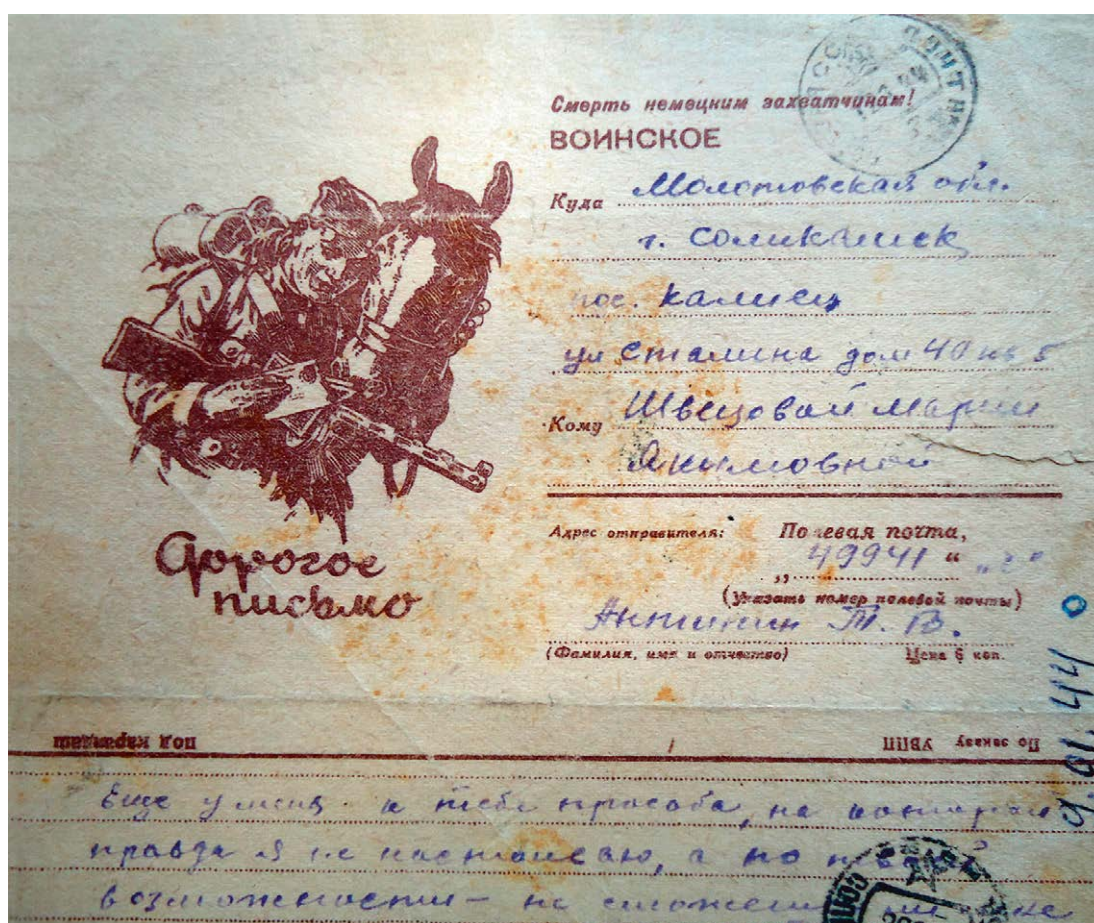 Смерть немецким захватчикам!
ВОИНСКОЕ
Куда Молотовская обл.
г. Соликамск
пос. Калиец
ул Сталина дом 40 кв 5
Кому Швецовой Марии
Акимовной
Адрес отправителя: Полевая почта,
„ 49941 “
(Указать номер полевой почты)
Антипин Т. В.
(Фамилия, имя и отчество) Цена 6 коп.
Дорогое
письмо
под карандаш По заказу УВПП
Еще у меня к тебе просьба, на которой
правда я не настаиваю, а по
возможности – не сможешь